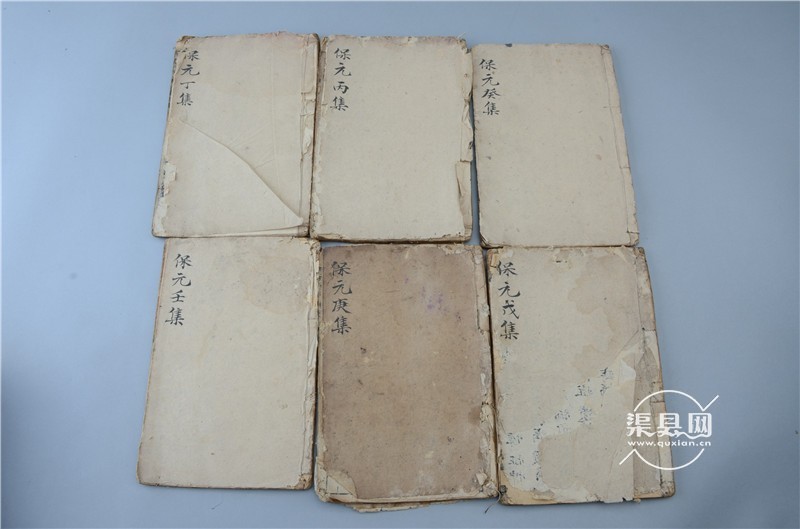 保元丁集
保元丙集
保元癸集
保元壬集
保元庚集
保元戊集
渠县网
www.quxian.cn